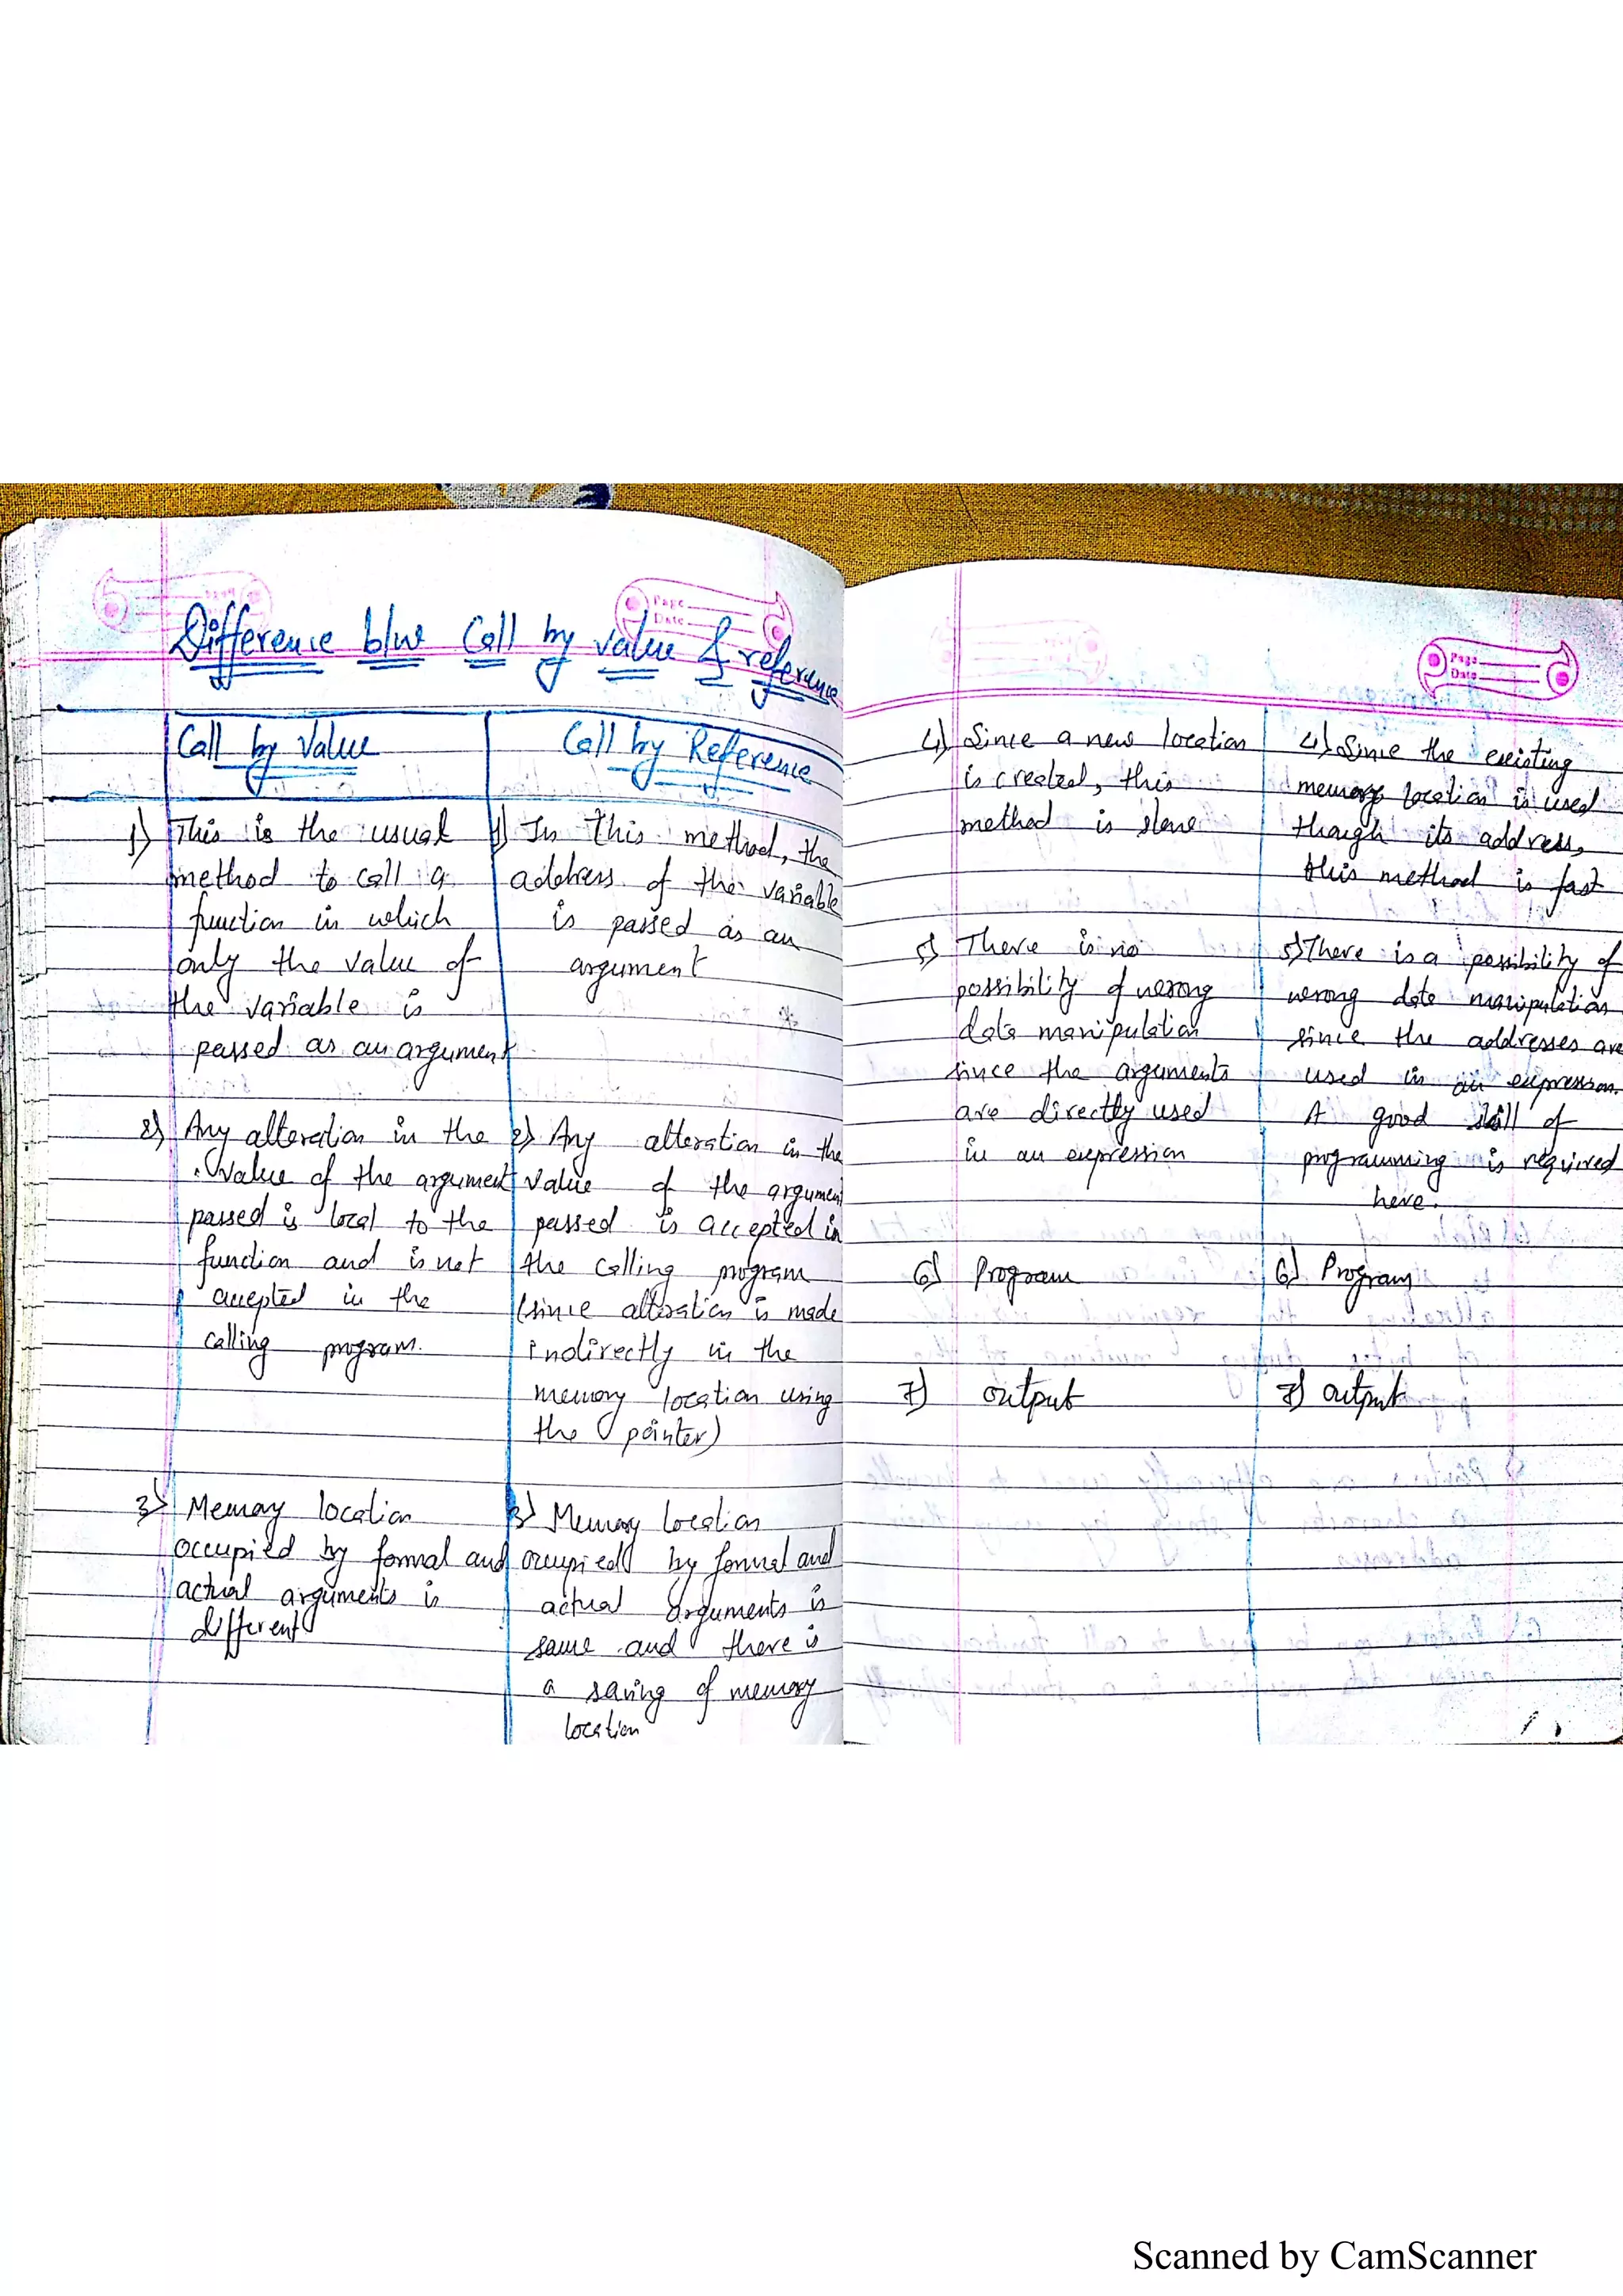 Page
Date
Difference b/w Call by value & reference
Call by Value
1) This is the usual
method to call a
function in which
only the value of
the variable is
passed as an argument
2) Any alteration in the
value of the argument
passed is local to the
function and is not
accepted in the
calling program.
3) Memory location
occupied by formal and
actual arguments is
different
Call by Reference
1) In this method, the
address of the variable
is passed as an
argument
2) Any alteration in the
value of the argument
passed is accepted in
the calling program
(since alteration is made
indirectly in the
memory location using
the pointer)
3) Memory location
occupied by formal and
actual arguments is
same and there is
a saving of memory
location
Page
Date
4) Since a new location
is created, this
method is slow
5) There is no
possibility of wrong
data manipulation
since the arguments
are directly used
in an expression
6) Program
7) output
4) Since the existing
memory location is used
though its address,
this method is fast
5) There is a possibility of
wrong data manipulation
since the addresses are
used in an expression.
A good skill of
programming is required
here.
6) Program
7) output
Scanned by CamScanner